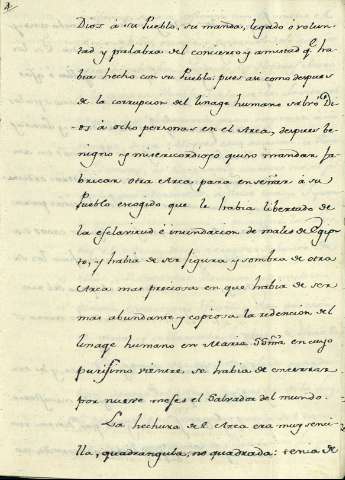 Dios á su Pueblo, su manda, legado ó volun-
tad y palabra del concierto y amistad q.e ha-
bia hecho con su Pueblo: pues asi como despues
de la corrupcion del linage humano salvó Di-
os á ocho personas en el Arca, despues be-
nigno y misericordioso quiso mandar fa-
bricar otra Arca para enseñar á su
Pueblo escogido que le habia libertado de
la esclavitud é inundacion de males de Egip-
to, y habia de ser figura y sombra de otra
Arca mas preciosa en que habia de ser
mas abundante y copiosa la redencion del
linage humano en Maria SSma. en cuyo
purisimo vientre se habia de encerrar
por nueve meses el Salvador del mundo.
La hechura del Arca era muy senci-
lla, quadrangula, no quadrada: tenia de